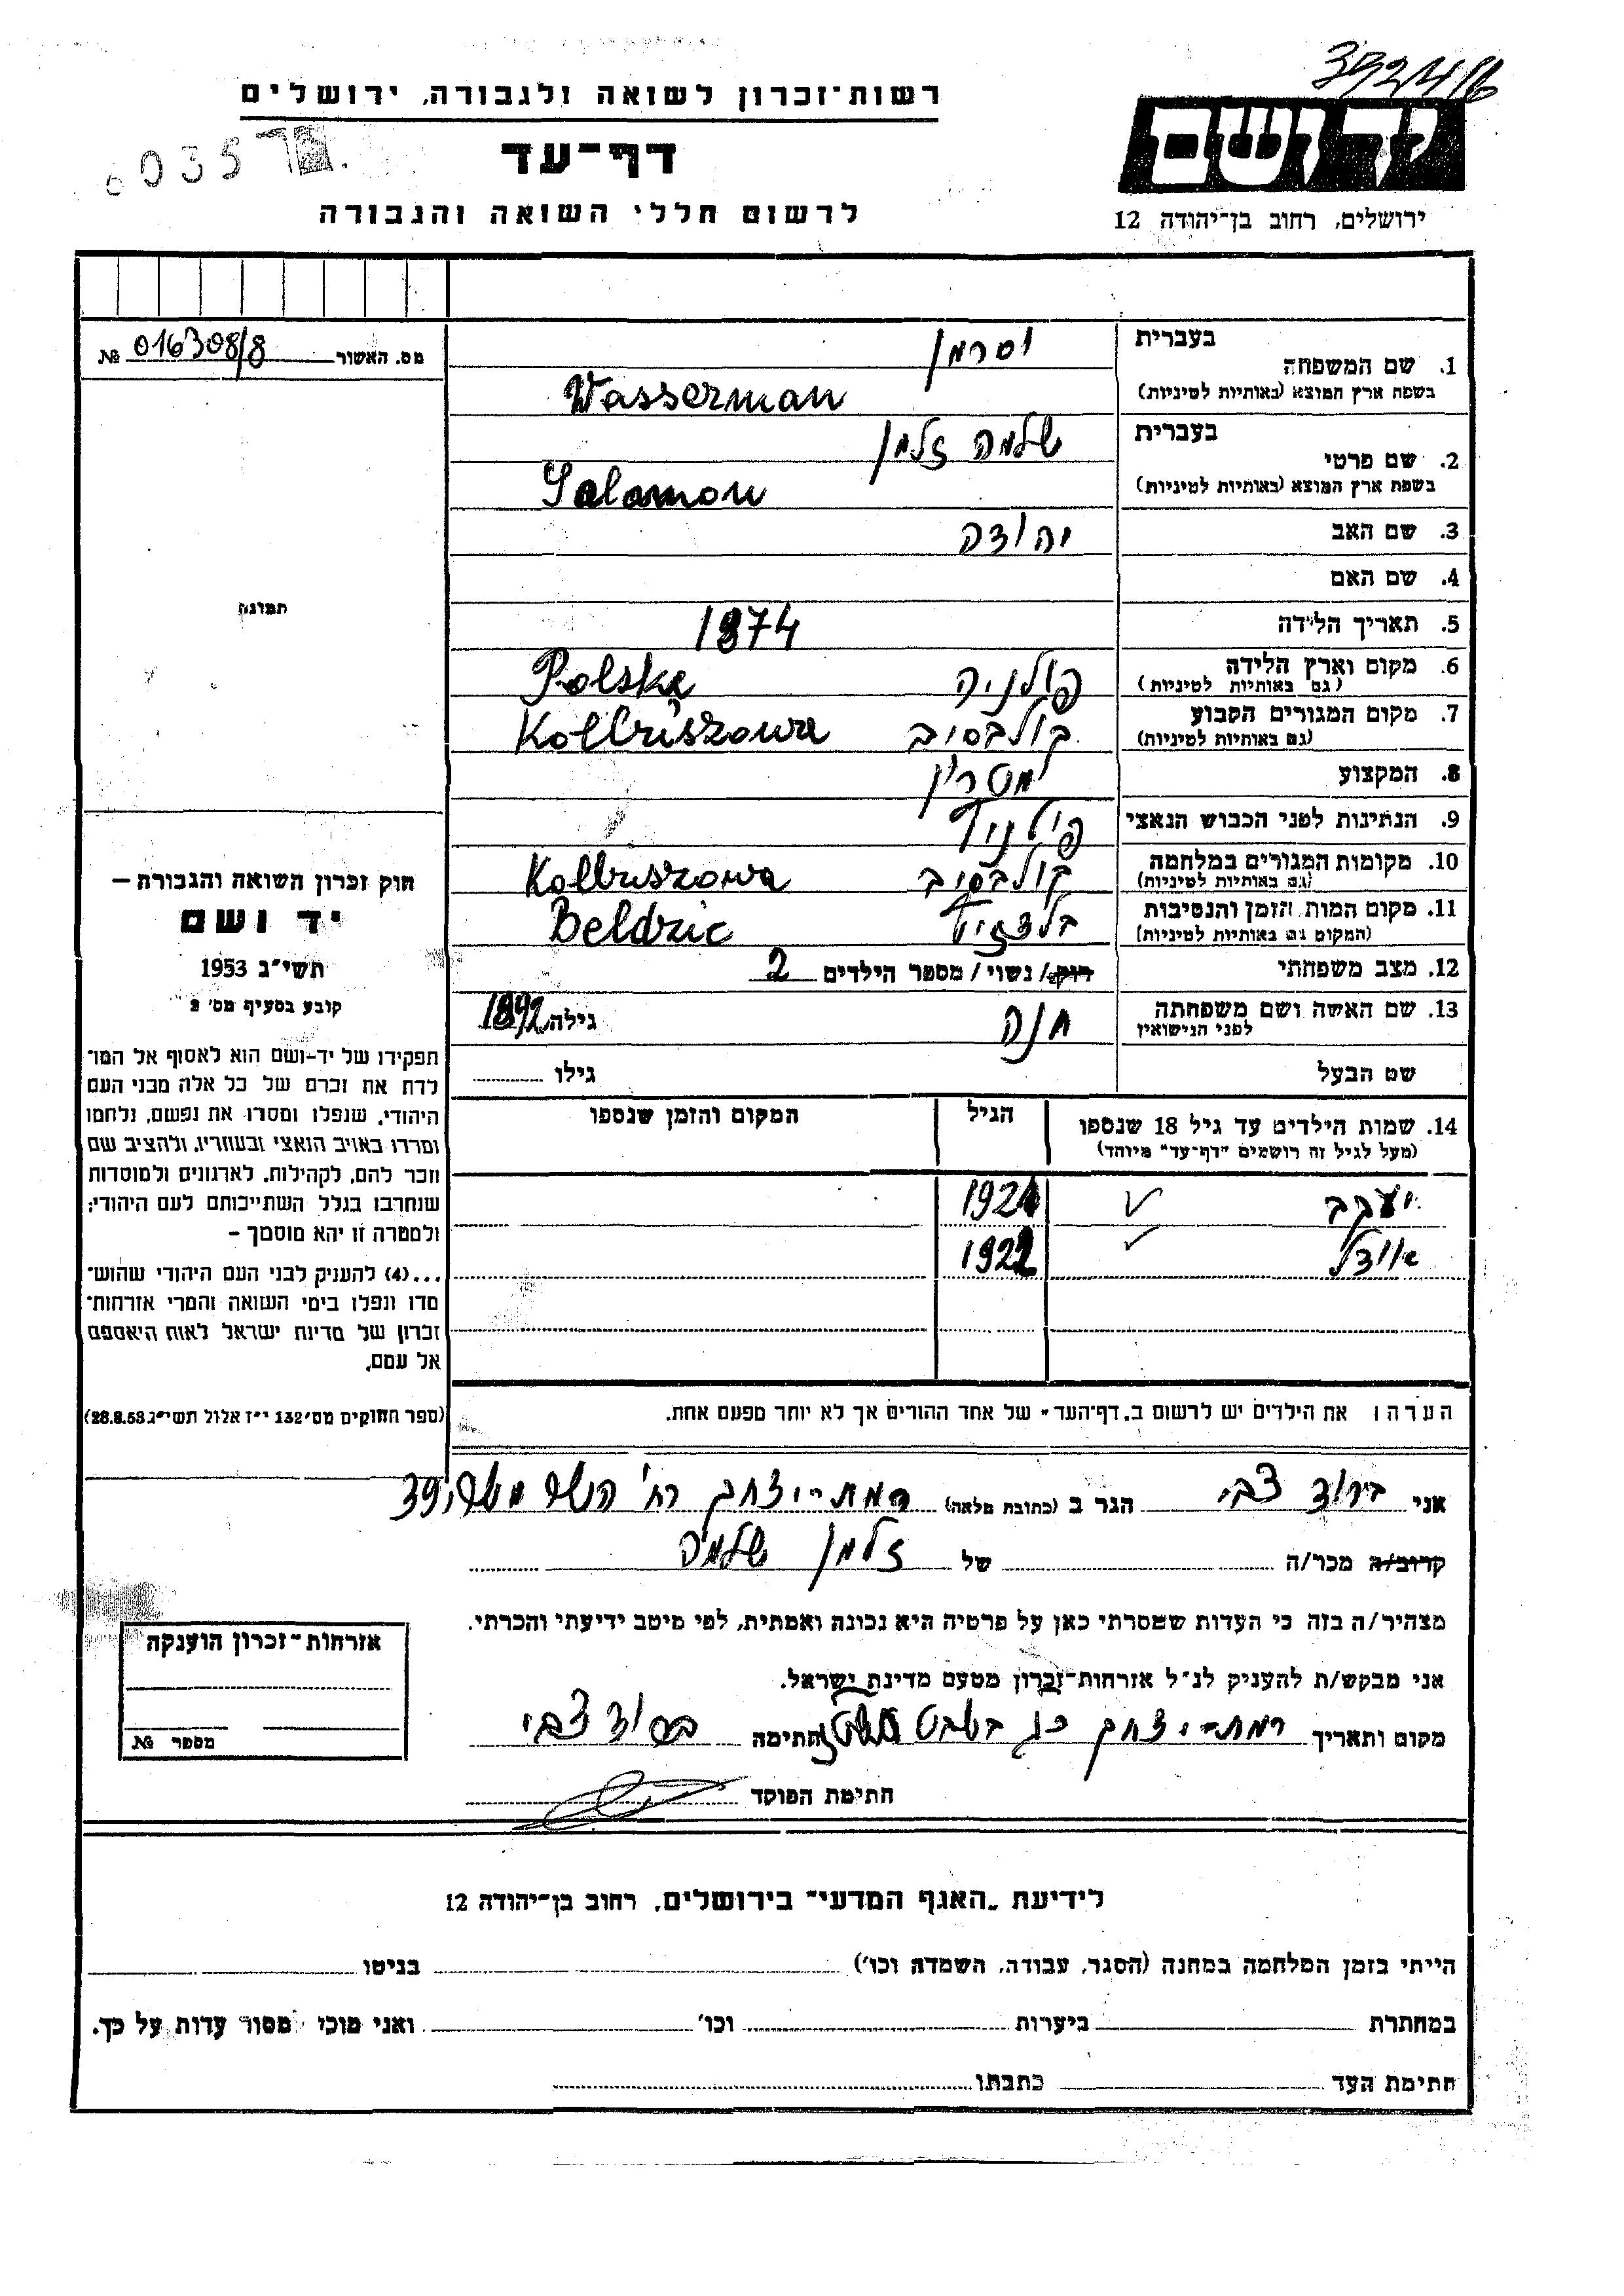 392416
רשות־זכרון לשואה ולגבורה, ירושלים
יד ושם
דף־עד
0035
לרשום חללי השואה והגבורה
ירושלים, רחוב בן־יהודה 12
מס. האשור 016308/8 №
בעברית וסרמן
1. שם המשפחה
בשפת ארץ המוצא (באותיות לטיניות) Wasserman
בעברית שלמה זלמן
2. שם פרטי
בשפת ארץ המוצא (באותיות לטיניות) Salamon
3. שם האב יהודה
4. שם האם
5. תאריך הלידה 1874
6. מקום וארץ הלידה פולניה Polska
(גם באותיות לטיניות)
7. מקום המגורים הקבוע קולבסוב Kolbuszowa
(גם באותיות לטיניות)
8. המקצוע
9. הנתינות לפני הכבוש הנאצי
10. מקומות המגורים במלחמה קולבסוב Kolbuszowa
(גם באותיות לטיניות)
11. מקום המות הזמן והנסיבות Beldzic
(המקום גם באותיות לטיניות)
12. מצב משפחתי רווק/ נשוי/ מספר הילדים 2
13. שם האשה ושם משפחתה חנה גילה 1892
לפני הנישואין
שם הבעל גילו
14. שמות הילדים עד גיל 18 שנספו הגיל המקום והזמן שנספו
(מעל לגיל זה רושמים "דף־עד" מיוחד)
יעקב 1921
אודל 1922
הערה: את הילדים יש לרשום ב„דף־העד" של אחד ההורים אך לא יותר מפעם אחת.
תמונה
חוק זכרון השואה והגבורה –
יד ושם
תשי"ג 1953
קובע בסעיף מס' 2
תפקידו של יד-ושם הוא לאסוף אל המו־
לדת את זכרם של כל אלה מבני העם
היהודי, שנפלו ומסרו את נפשם, נלחמו
ומרדו באויב הנאצי ובעוזריו, ולהציב שם
וזכר להם, לקהילות, לארגונים ולמוסדות
שנחרבו בגלל השתייכותם לעם היהודי;
ולמטרה זו יהא מוסמך –
...(4) להעניק לבני העם היהודי שהוש־
מדו ונפלו בימי השואה והמרי אזרחות־
זכרון של מדינת ישראל לאות היאספם
אל עמם.
(ספר החוקים מס' 132 י"ז אלול תשי"ג 28.8.53)
אני צבי הגר ב (כתובת מלאה) רמת-יצחק רח' 39
קרוב/ה מכר/ה של זלמן שלמה
מצהיר/ה בזה כי העדות שמסרתי כאן על פרטיה היא נכונה ואמתית, לפי מיטב ידיעתי והכרתי.
אני מבקש/ת להעניק לנ"ל אזרחות־זכרון מטעם מדינת ישראל.
מקום ותאריך רמת-יצחק חתימה צבי
חתימת הפוקד
אזרחות־זכרון הוענקה
מספר №
לידיעת „האגף המדעי" בירושלים, רחוב בן־יהודה 12
הייתי בזמן המלחמה במחנה (הסגר, עבודה, השמדה וכו') בגיטו
במחתרת ביערות וכו' ואני מוכן למסור עדות על כך.
חתימת העד כתבתו